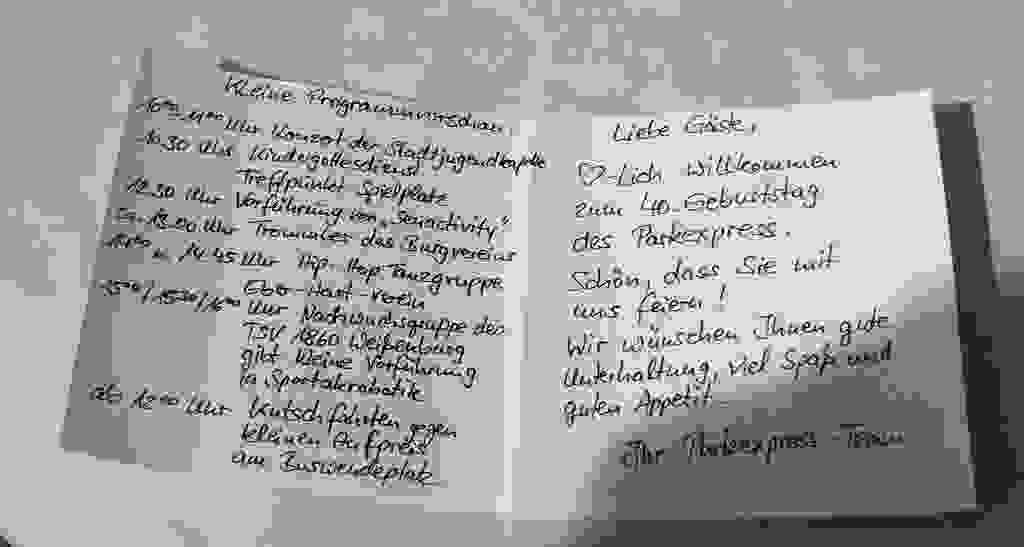 Kleine Programmvorschau:
10⁰⁰-11⁰⁰ Uhr Konzert der Stadtjugendkapelle
10.30 Uhr Kindergottesdienst
Treffpunkt Spielplatz
12.30 Uhr Vorführung von „Senactivity"
ca. 13.00 Uhr Trommler des Burgvereins
u. 14.45 Uhr Hip-Hop Tanzgruppe
Eber-Hart-Verein
15⁰⁰/15³⁰/16⁰⁰ Uhr Nachwuchsgruppe des
TSV 1860 Weißenburg
gibt kleine Vorführung
in Sportakrobatik
ab 12⁰⁰ Uhr Kutschfahrten gegen
kleinen Aufpreis
am Buswendeplatz
Liebe Gäste,
♡-lich willkommen
zum 40. Geburtstag
des Parkexpress.
Schön, dass Sie mit
uns feiern!
Wir wünschen Ihnen gute
Unterhaltung, viel Spaß und
guten Appetit.
Ihr Parkexpress-Team